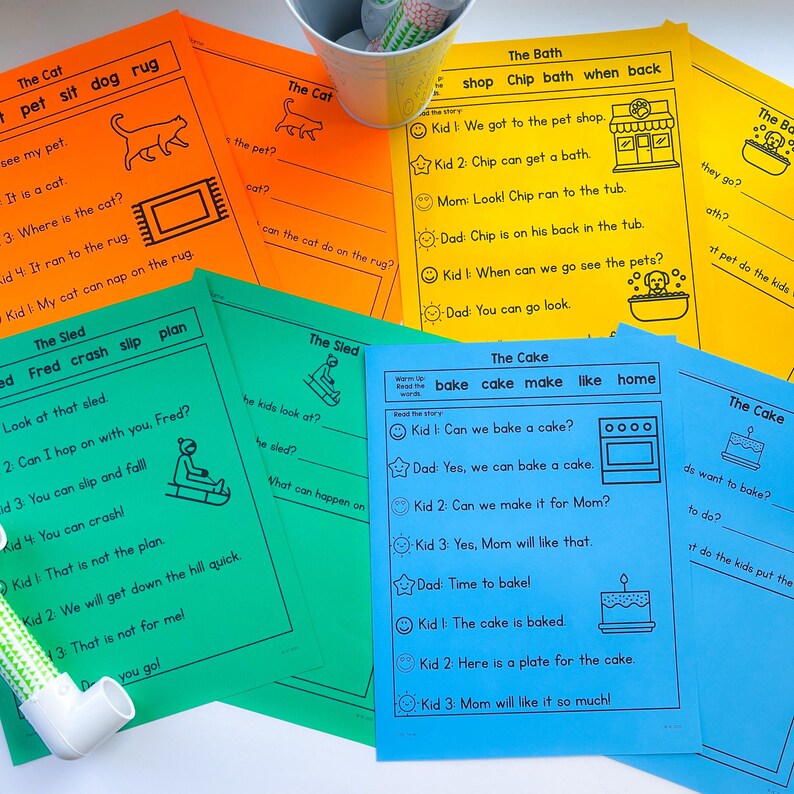 The Cat
pet sit dog rug
see my pet.
It is a cat.
3: Where is the cat?
Kid 4: It ran to the rug.
Kid 1: My cat can nap on the rug.
The Cat
the pet?
cat?
can the cat do on the rug?
The Bath
shop Chip bath when back
Read the story:
Kid 1: We got to the pet shop.
Kid 2: Chip can get a bath.
Mom: Look! Chip ran to the tub.
Dad: Chip is on his back in the tub.
Kid 1: When can we go see the pets?
Dad: You can go look.
The Ba
they go?
ath?
at pet do the kids
The Sled
Fred crash slip plan
Look at that sled.
2: Can I hop on with you, Fred?
Kid 3: You can slip and fall!
Kid 4: You can crash!
Kid 1: That is not the plan.
Kid 2: We will get down the hill quick.
3: That is not for me!
you go!
The Sled
the kids look at?
the sled?
What can happen on
The Cake
Warm Up: Read the words.
bake cake make like home
Read the story:
Kid 1: Can we bake a cake?
Dad: Yes, we can bake a cake.
Kid 2: Can we make it for Mom?
Kid 3: Yes, Mom will like that.
Dad: Time to bake!
Kid 1: The cake is baked.
Kid 2: Here is a plate for the cake.
Kid 3: Mom will like it so much!
The Cake
ds want to bake?
to do?
at do the kids put the